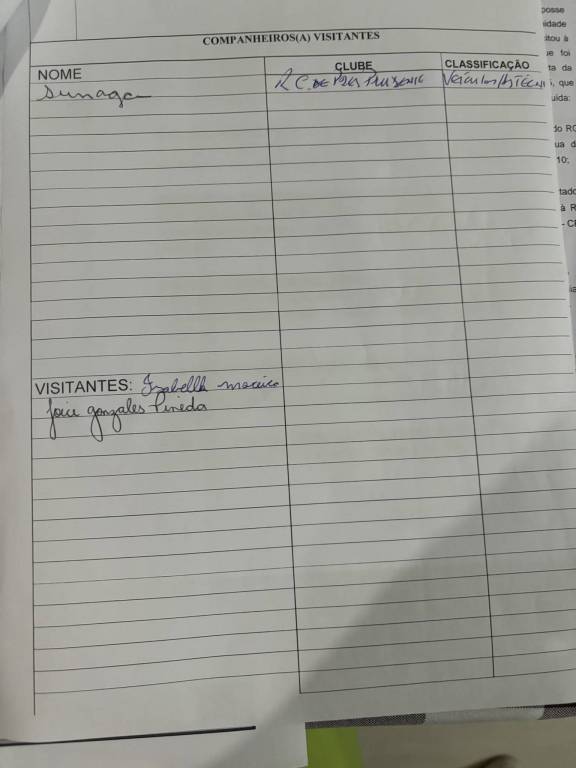 COMPANHEIROS(A) VISITANTES
NOME CLUBE CLASSIFICAÇÃO
Sunaga R.C. DE PRES PRUDENTE Veículos/ASTÉCNI
VISITANTES: Izabella
Joice gonzales Pineda
posse
idade
itou à
ue foi
ta da
, que
uida:
do RO
ua d
10;
tado
à R
- CE